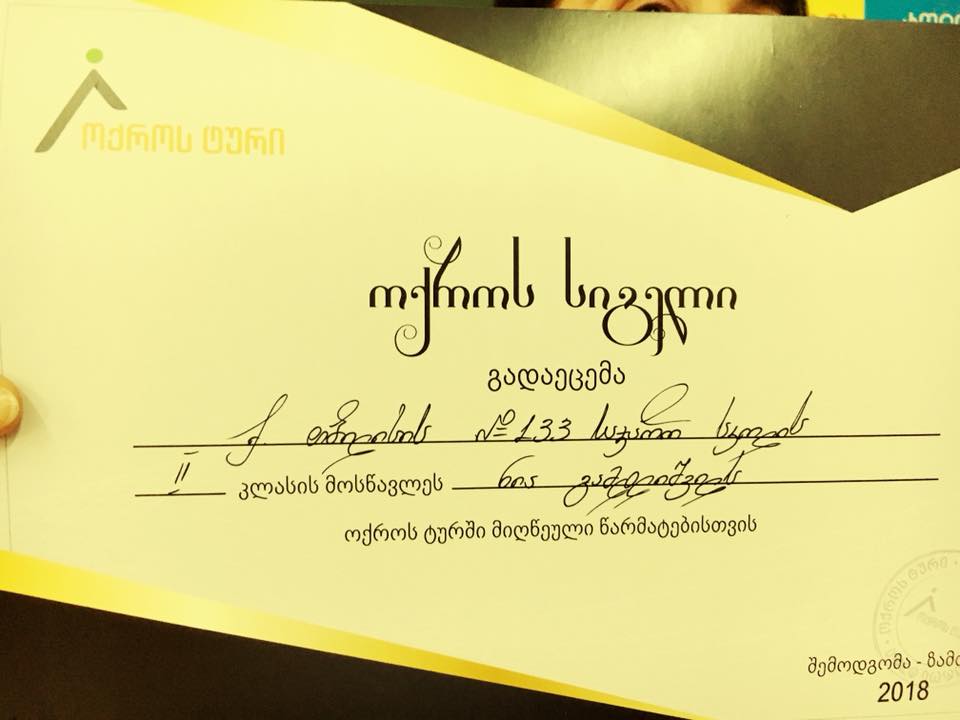 ოქროს ტური
ოქროს სიგელი
გადაეცემა
ქ. თბილისის №133 საჯარო სკოლის
II კლასის მოსწავლეს ნია
ოქროს ტურში მიღწეული წარმატებისთვის
ოქროს ტური
შემოდგომა -
2018